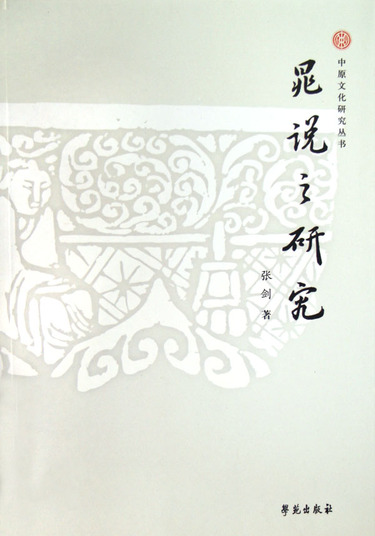 中原文化研究丛书
晁说之研究
张剑 著
学苑出版社